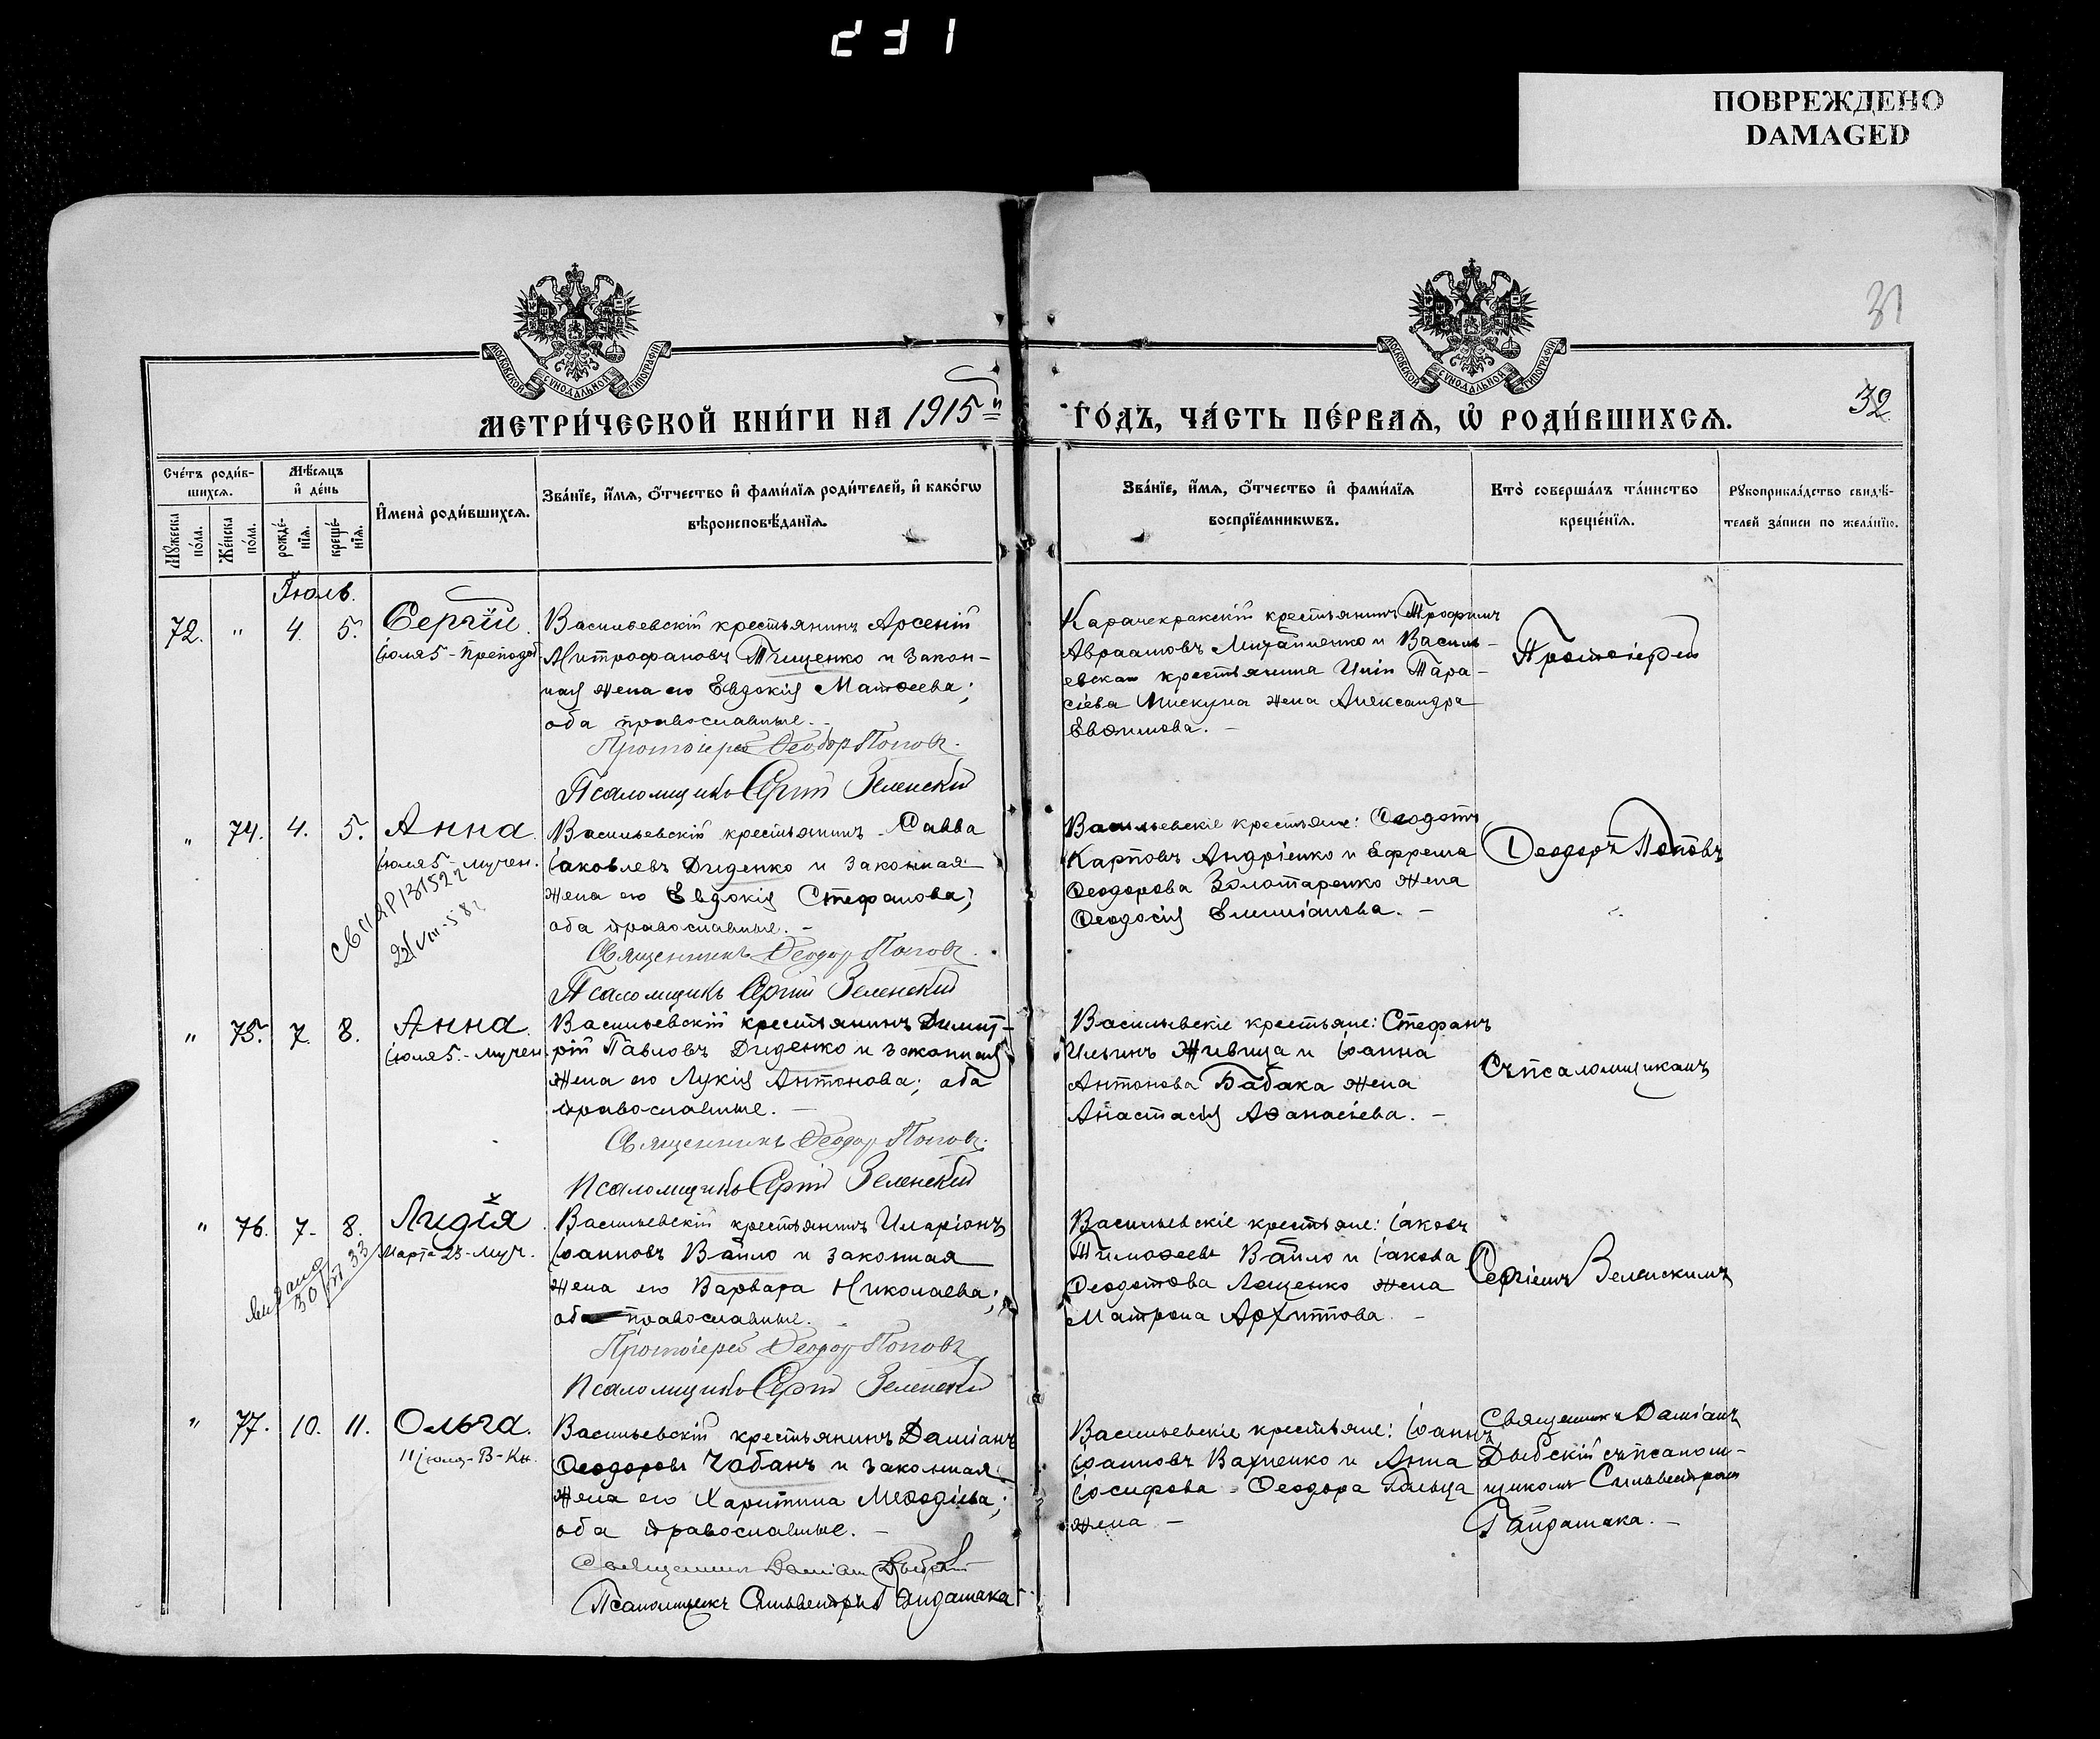 231
ПОВРЕЖДЕНО
DAMAGED
31
32
МОСКОВСКОЙ СУНОДАЛЬНОЙ ТИПОГРАФІИ
МОСКОВСКОЙ СУНОДАЛЬНОЙ ТИПОГРАФІИ
МЕТРИ́ЧЕСКОЙ КНИ́ГИ НА 1915 й ГО́ДЪ, ЧА́СТЬ ПЕ́РВАѦ, Ѡ҆ РОДИ́ВШИХСѦ.
Сче́тъ роди́в-
шихсѧ.
Мꙋжеска по́ла.
Же́нска по́ла.
Мѣ́сѧцъ
и҆ де́нь
рожде́-
нїѧ.
креще́-
нїѧ.
И҆мена̀ роди́вшихсѧ.
Зва́нїе, и҆́мѧ, ѻ҆́тчество и҆ фами́лїѧ роди́телей, и҆ како́гѡ
вѣроисповѣ́данїѧ.
Зва́нїе, и҆́мѧ, ѻ҆́тчество и҆ фами́лїѧ
воспрїе́мникѡвъ.
Кто̀ соверша́лъ та́инство
креще́нїѧ.
Рꙋкоприкла́дство свидѣ́-
телей за́писи по жела́нїю.
Іюль.
72. " 4. 5. Сергій.
Іюля 5 - Преподоб.
Васильевскій крестьянинъ Арсеній
Митрофановъ Тищенко и закон-
ная жена его Евдокія Матѳеева;
оба православные. -
Протоіерей Ѳеодор Попов.
Псаломщикъ Сергій Зеленскій
Карачекракскій крестьянинъ Трофимъ
Авраамовъ Михайленко и Василь-
евская крестьянина Иліи Тара-
сіева Пискуна жена Александра
Евѳимова. -
Протоіерей
" 74. 4. 5. Анна.
Іюля 5 - мучен.
22/VIII-58г
Васильевскій крестьянинъ Савва
Іаковлевъ Диденко и законная
жена его Евдокія Стефанова;
оба православные. -
Священникъ Ѳеодор Попов.
Псаломщикъ Сергій Зеленскій
Васильевскіе крестьяне: Ѳеодотъ
Карповъ Андріенко и Ефрема
Ѳеодорова Золотаренко жена
Ѳеодосія Емиліанова. -
Ѳеодоръ Поповъ
" 75. 7. 8. Анна.
Іюля 5. - мучен.
Васильевскій крестьянинъ Димит-
рій Павловъ Диденко и законная
жена его Лукія Антонова; оба
православные. -
Священникъ Ѳеодор Попов.
Псаломщикъ Сергій Зеленскій
Васильевскіе крестьяне: Стефанъ
Ильинъ Живица и Іоанна
Антонова Бабака жена
Анастасія Аѳанасіева. -
Съ псаломщикомъ
" 76. 7. 8. Лидія.
Марта 23 - муч.
выдано
30/VI 33
Васильевскій крестьянинъ Иларіонъ
Іоанновъ Вайло и законная
жена его Варвара Николаева;
оба православные.
Протоіерей Ѳеодор Поповъ
Псаломщикъ Сергій Зеленскій
Васильевскіе крестьяне: Іаковъ
Тимоѳеевъ Вайло и Іакова
Ѳеодотова Лященко жена
Матрона Архиппова. -
Сергіемъ Зеленскимъ
" 77. 10. 11. Ольга.
11 іюля - В - Кн.
Васильевскій крестьянинъ Даміанъ
Ѳеодоровъ Чабанъ и законная
жена его Харитина Меѳодіева;
оба православные. -
Священникъ Даміан Дыбскій
Псаломщикъ Сильвестръ Гайдамака
Васильевскіе крестьяне: Іоаннъ
Іоанновъ Вахненко и Анна
Іосифова Ѳеодора Гальца
жена -
Священникъ Даміанъ
Дыбскій съ псалом-
щикомъ Сильвестромъ
Гайдамака. -